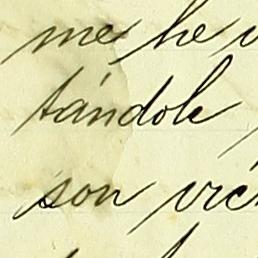 me he
tándole
son vic